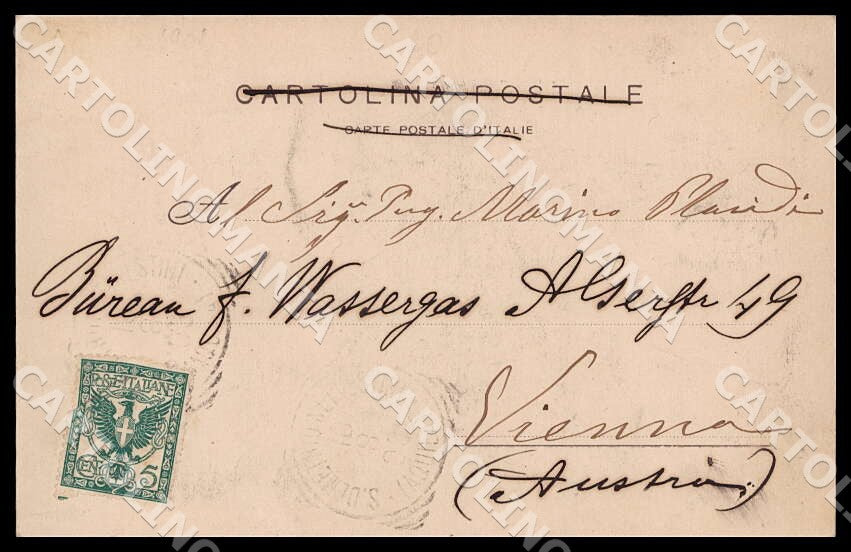 CARTOLINA POSTALE
CARTE POSTALE D'ITALIE
Al Sig. Ing. Marino Placidi
Büreau f. Wassergas Alserstr 49
Vienna
(Austria)
POSTE ITALIANE
CENT 5
CARTOLINOMANIA